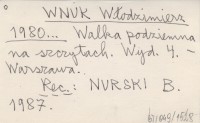 WNUK Włodzimierz
1980... Walka podziemna
na szczytach. Wyd. 4. -
Warszawa.
Rec.: NURSKI B.
1987.